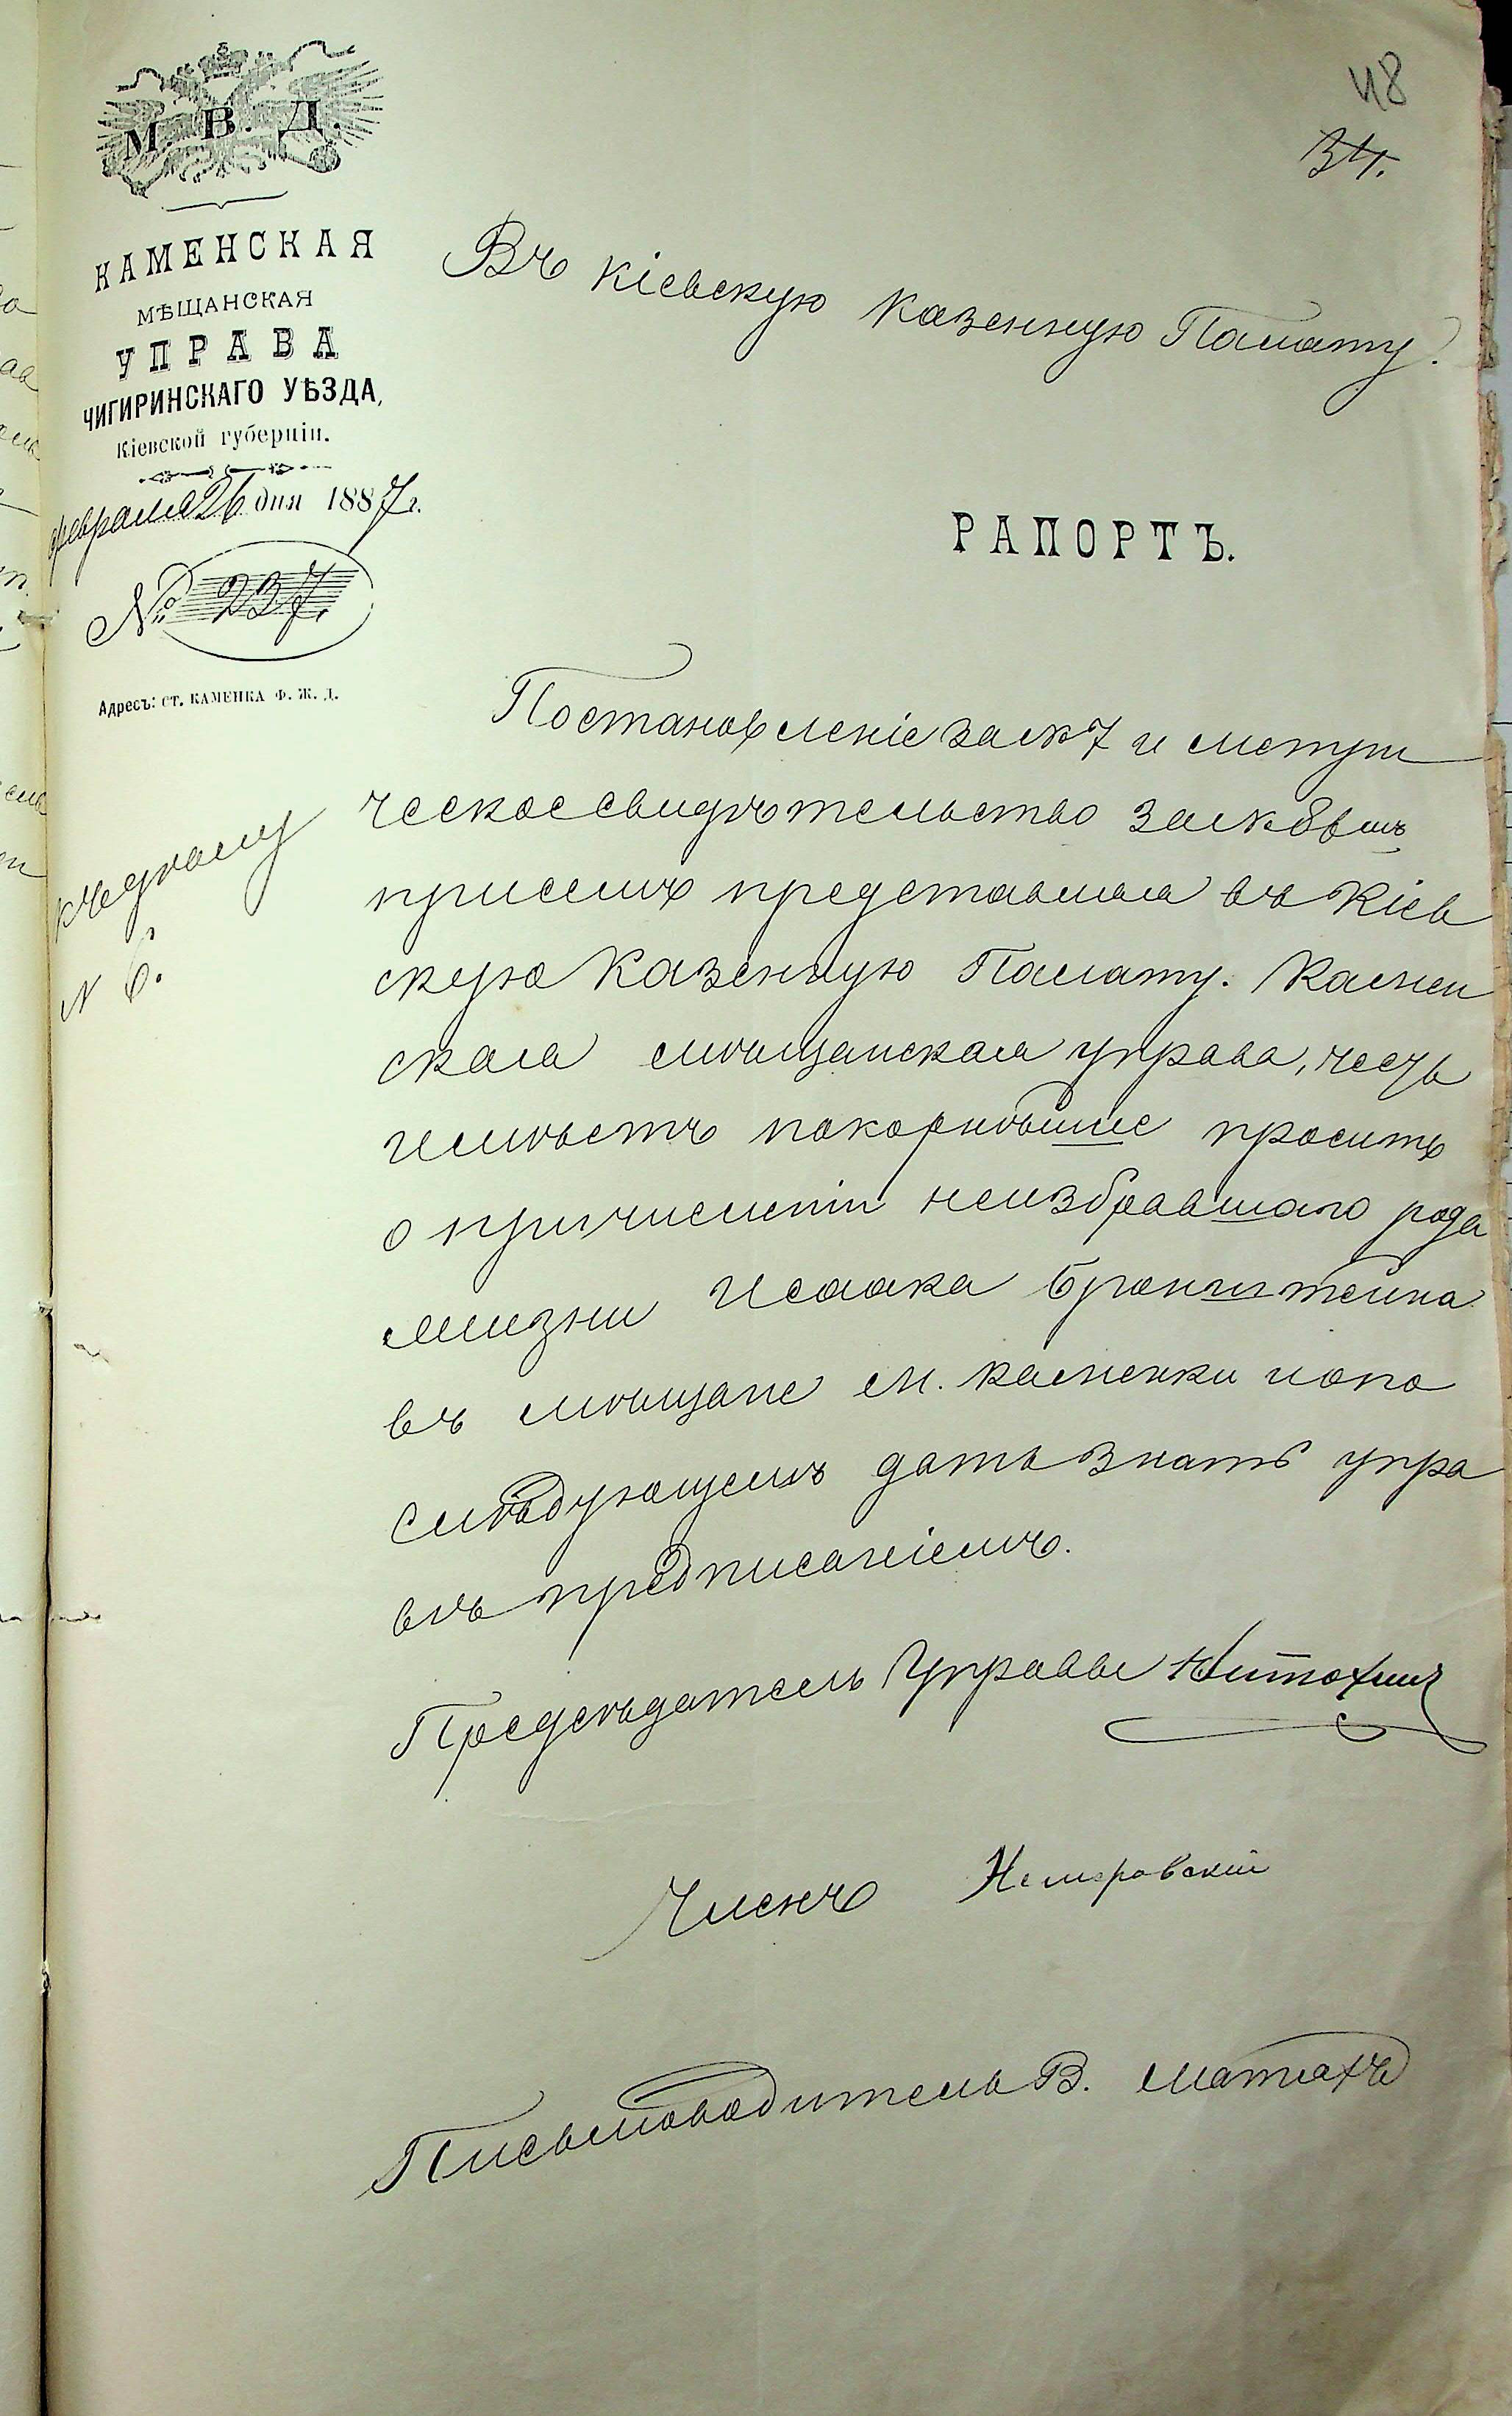 48
34.
М. В. Д.
КАМЕНСКАЯ
МѢЩАНСКАЯ
УПРАВА
ЧИГИРИНСКАГО УѢЗДА,
Кіевской губерніи.
февраля 26 дня 1887 г.
№ 237.
Адресъ: ст. КАМЕНКА Ф. Ж. Д.
Въ Кіевскую Казенную Палату.
РАПОРТЪ.
Постановленіе за № 7 и метри
ческое свидѣтельство за № 8
при семъ представляя въ Кіев
скую Казенную Палату. Камен
ская мѣщанская управа, честь
имѣетъ покорнѣйше просить
о причисленіи неизбравшаго рода
жизни Исаака Бронштейна
въ мѣщане м. Каменки и о по
слѣдующемъ дать знать упра
вѣ предписаніемъ.
Предсѣдатель Управы
Членъ Немировскій
Письмоводитель В.
№ 6.